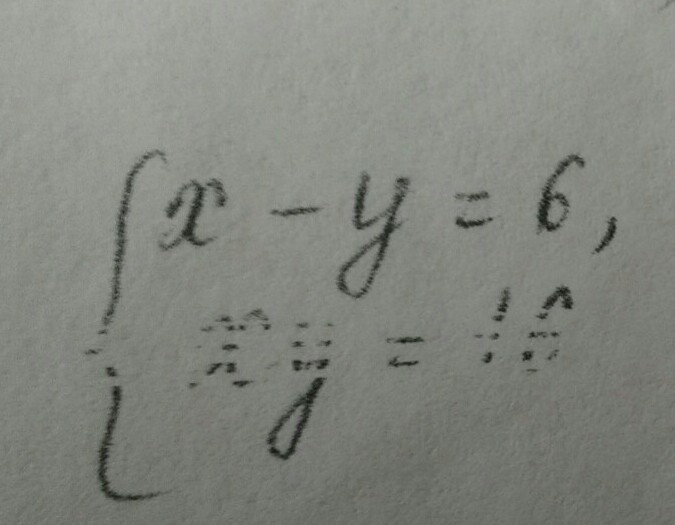 x - y = 6,
xy = 16